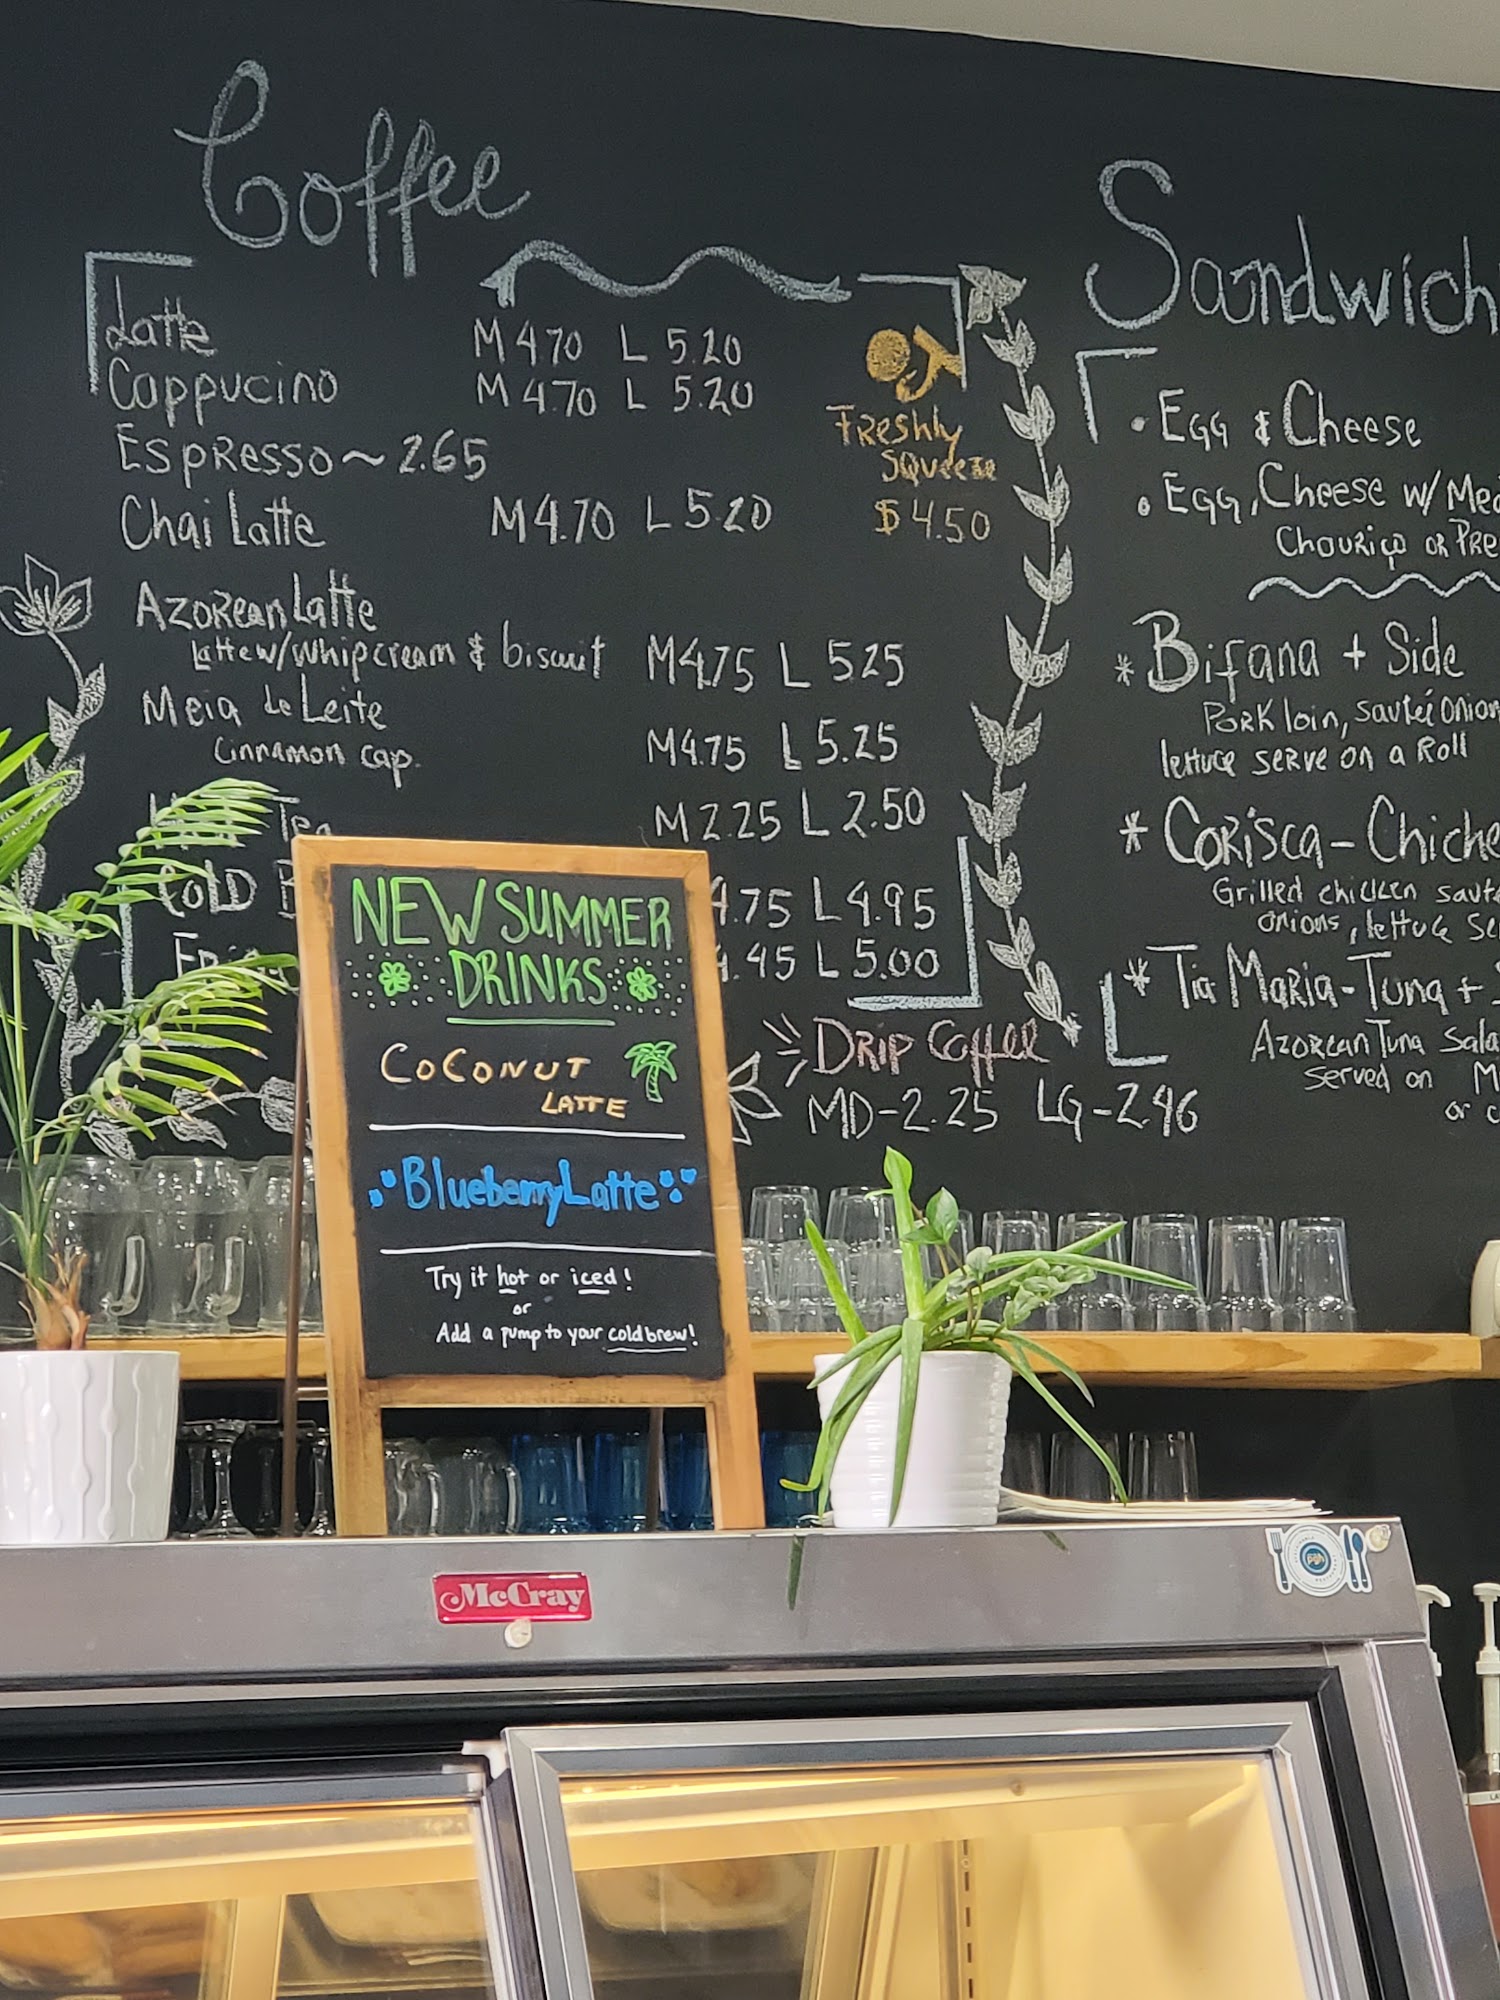 Coffee
Latte M 4.70 L 5.20
Cappucino M 4.70 L 5.20
Espresso ~ 2.65
Chai Latte M 4.70 L 5.20
Azorean Latte
Latte w/ whipcream & biscuit M 4.75 L 5.25
Meia de Leite
Cinnamon cap. M 4.75 L 5.25
Tea M 2.25 L 2.50
COLD 4.75 L 4.95
.45 L 5.00
Freshly
Squeeze
$4.50
Drip Coffee
MD-2.25 LG-2.96
Sandwich
• Egg & Cheese
• Egg, Cheese w/
Chouriço or
* Bifana + Side
Pork loin, sauteé onion
lettuce serve on a Roll
* Corisca-
Grilled chicken
onions, lettuce
* Tia Maria-Tuna +
Azorean Tuna
served on
or
NEW SUMMER
DRINKS
COCONUT
LATTE
Blueberry Latte
Try it hot or iced!
or
Add a pump to your cold brew!
McCray